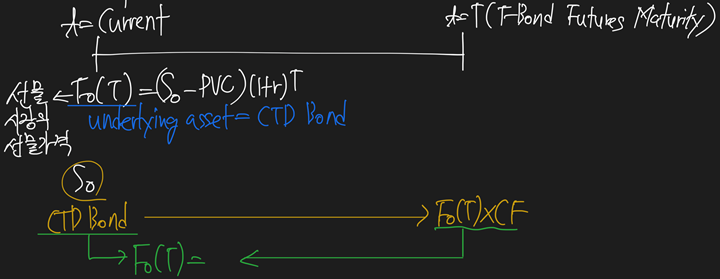 t=Current
t=T(T-Bond Futures Maturity)
선물 시장의 선물가격 ← F₀(T)=(S₀-PVC)(1+r)^T
underlying asset= CTD Bond
S₀
CTD Bond → F₀(T)×CF
F₀(T)=